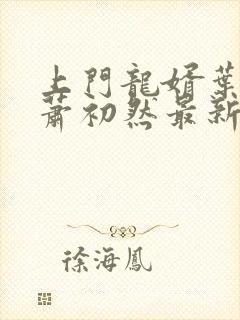 上門龍婿葉
蕭初然最新
徐海鳳